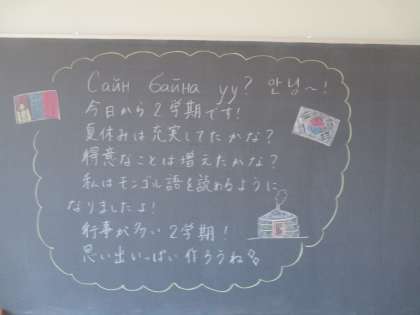 Сайн байна уу? 안녕~!
今日から2学期です!
夏休みは充実してたかな?
得意なことは増えたかな?
私はモンゴル語を読めるように
なりましたよ!
行事が多い2学期!
思い出いっぱい作ろうね